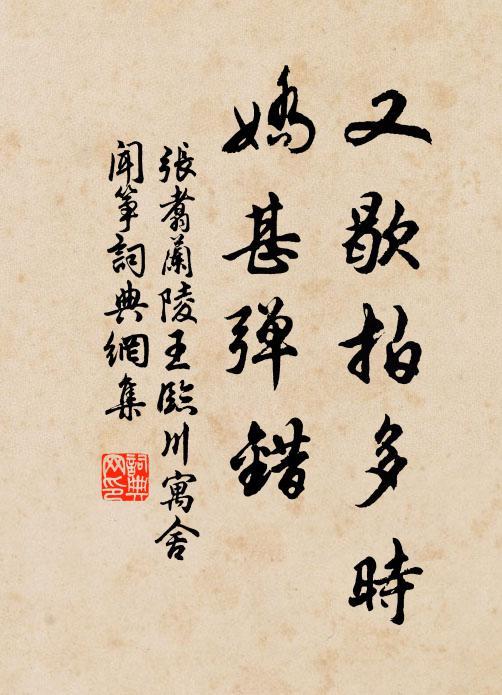 又歇拍多時
嬌甚彈錯
張翥蘭陵王臨川寓舍
聞箏詞典網集
詞典
网印